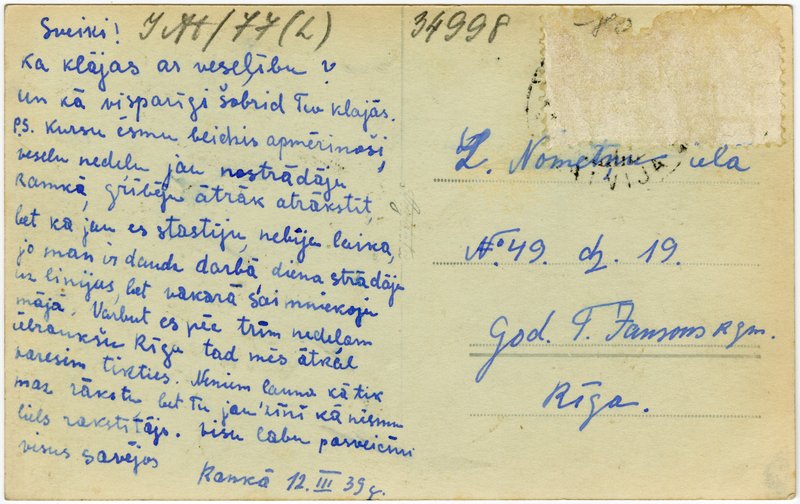 Sveiki!
Ка klājas ar veselību?
un kā visparīgi šobrid Tev klajās.
P.S. kursu ēsmu beidzis apmērinoši,
veselu nedeļu jau nostrādāju
Rankā, gribēju ātrāk atrākstīt,
bet kā jau es stastiju, nebija laika,
jo man ir daudz darbā, diena strādāju
uz linijas, bet vakarā saimniekoju
mājā. Varbut es pēc trim nedeļam
iebraukšu Rīgā tad mēs ātkal
varesim tikties. Neņem ļauna kā tik
maz rākstu bet Tu jau zini kā neesmu
liels rakstītājs. Visu labu pasveicini
visus savējos
Rankā 12. III 39 g.
JAH/77(L)
34998
-80
L. Nometnu - iela
№ 49. dz. 19.
God. T. Jansons kgm.
Rīga.